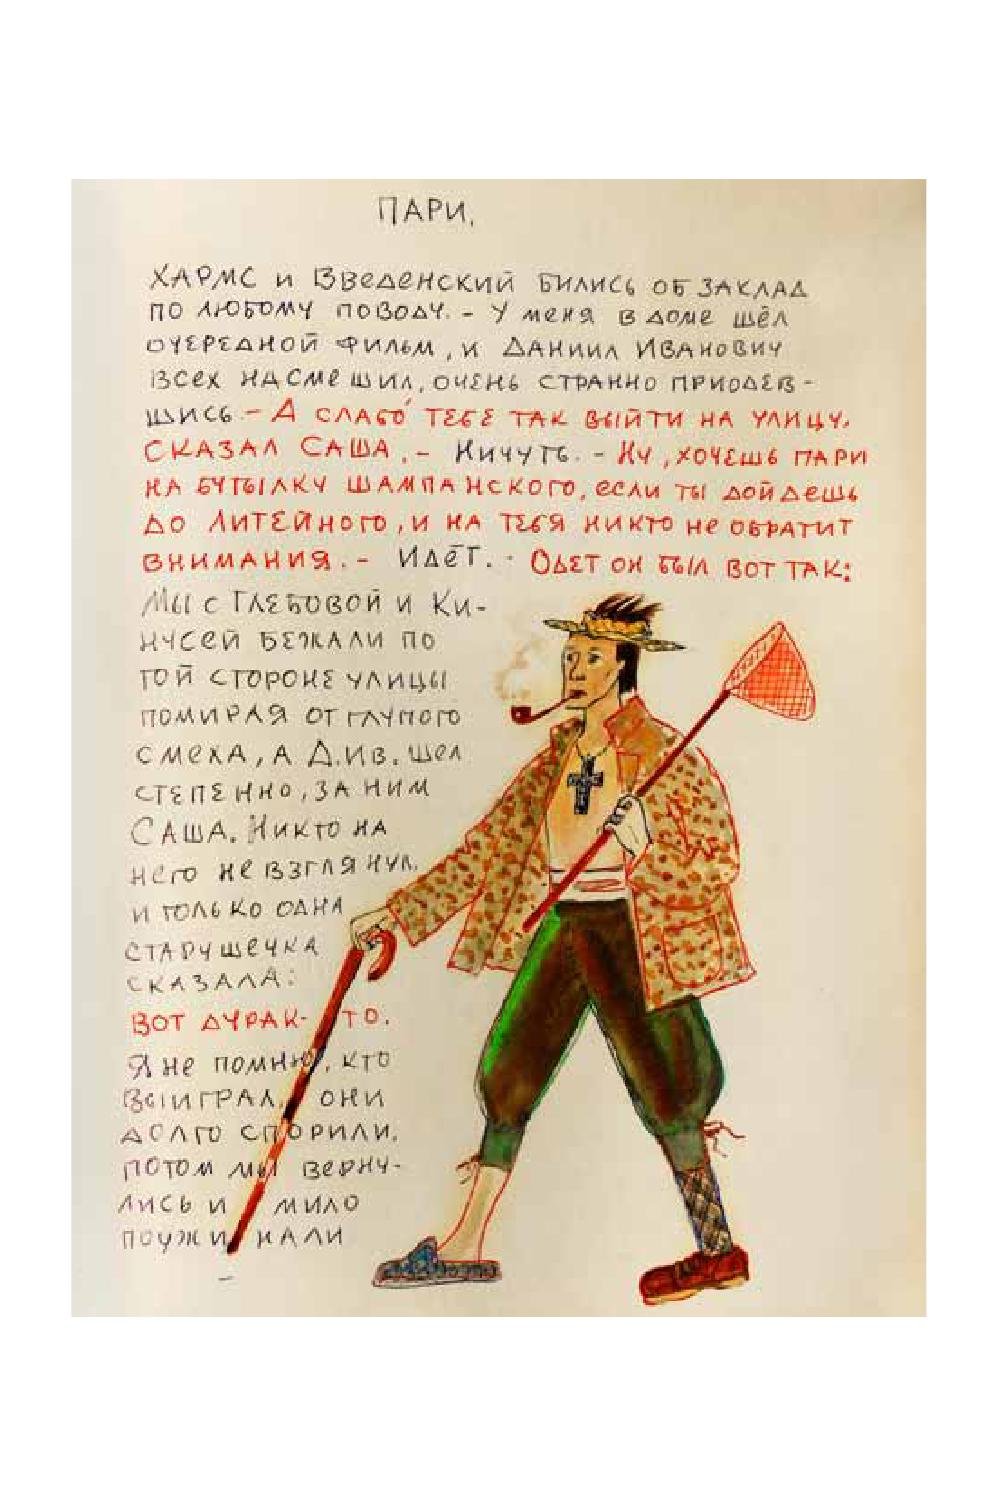 ПАРИ.
ХАРМС И ВВЕДЕНСКИЙ БИЛИСЬ ОБ ЗАКЛАД
ПО ЛЮБОМУ ПОВОДУ. - У МЕНЯ В ДОМЕ ШЁЛ
ОЧЕРЕДНОЙ ФИЛЬМ, И ДАНИИЛ ИВАНОВИЧ
ВСЕХ НАСМЕШИЛ, ОЧЕНЬ СТРАННО ПРИОДЕВ-
ШИСЬ - А СЛАБÓ ТЕБЕ ТАК ВЫЙТИ НА УЛИЦУ,
СКАЗАЛ САША. - НИЧУТЬ. - НУ, ХОЧЕШЬ ПАРИ
НА БУТЫЛКУ ШАМПАНСКОГО, ЕСЛИ ТЫ ДОЙДЕШЬ
ДО ЛИТЕЙНОГО, И НА ТЕБЯ НИКТО НЕ ОБРАТИТ
ВНИМАНИЯ. - ИДЁТ. - ОДЕТ ОН БЫЛ ВОТ ТАК:
МЫ С ГЛЕБОВОЙ И КИ-
НУСЕЙ БЕЖАЛИ ПО
ТОЙ СТОРОНЕ УЛИЦЫ
ПОМИРАЯ ОТ ГЛУПОГО
СМЕХА, А Д.ИВ. ШЕЛ
СТЕПЕННО, ЗА НИМ
САША. НИКТО НА
НЕГО НЕ ВЗГЛЯНУЛ,
И ТОЛЬКО ОДНА
СТАРУШЕЧКА
СКАЗАЛА:
ВОТ ДУРАК-ТО.
Я НЕ ПОМНЮ, КТО
ВЫИГРАЛ, ОНИ
ДОЛГО СПОРИЛИ,
ПОТОМ МЫ ВЕРНУ-
ЛИСЬ И МИЛО
ПОУЖИНАЛИ